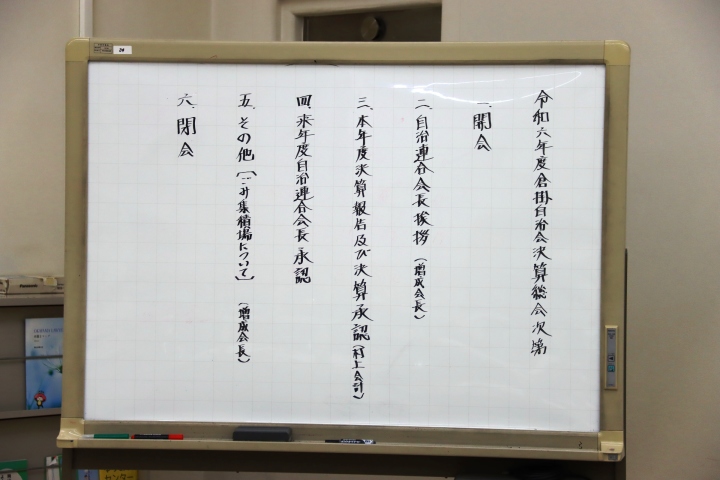 令和六年度倉掛自治会決算総会次第
一、開会
二、自治連合会長挨拶(増成会長)
三、本年度決算報告及び決算承認(村上会計)
四、来年度自治連合会長承認
五、その他[ごみ集積場について](増成会長)
六、閉会
24
Panasonic